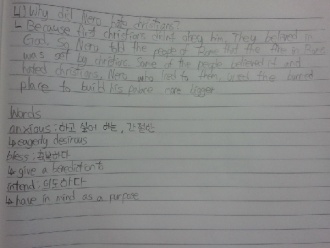 4) Why did Nero hate christians?
↳ Because first christians didnt obey him. They believed in
God. So Nero told the people of Rome that the fire in Rome
was set by christians. Some of the people believed it and
hated christians. Nero, who lied to them, used the burned
place to build his palace more bigger.
Words
anxious: 하고 싶어 하는, 간절한
↳ eagerly desirous
bless: 축복하다
↳ give a benediction to
intend: 의도하다
↳ have in mind as a purpose